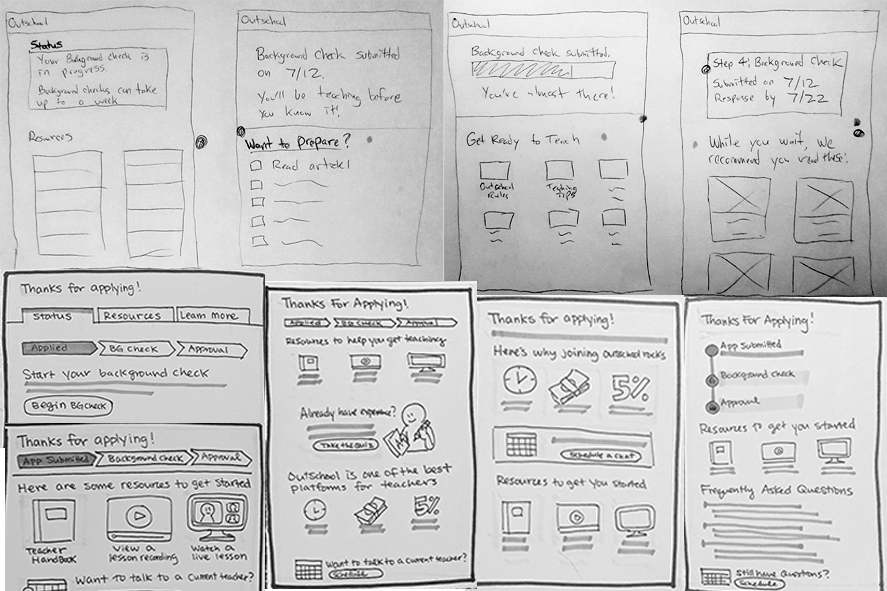 Outschool
Status
Your Background check is
in progress.
Background checks can take
up to a week
Resources
Outschool
Background Check submitted
on 7/12.
You'll be teaching before
you know it!
Want to Prepare?
Read article!
Outschool
Background check submitted.
You're almost there!
Get Ready to Teach
Outschool
Rules
Teaching
Tips
Outschool
Step 4: Background Check
Submitted on 7/12
Response by 7/22
While you wait, we
recommend you read these:
Thanks for applying!
Status
Resources
Learn more
Applied
BG Check
Approval
Start your background check
Begin BG Check
Thanks for applying!
App Submitted
Background check
Approval
Here are some resources to get started
Teacher
Handbook
View a
lesson recording
Watch a
live lesson
Want to talk to a current teacher?
Thanks For Applying!
Applied
BG Check
Approval
Resources to help you get teaching
Already have experience?
Take the Quiz
Outschool is one of the best
platforms for teachers
5%
Want to talk to a current teacher?
Schedule
Thanks for applying!
Here's why joining Outschool rocks
5%
Schedule a chat
Resources to get you started
Thanks For Applying!
App Submitted
Background check
Approval
Resources to get you started
Frequently Asked Questions
Still have Questions?
Schedule